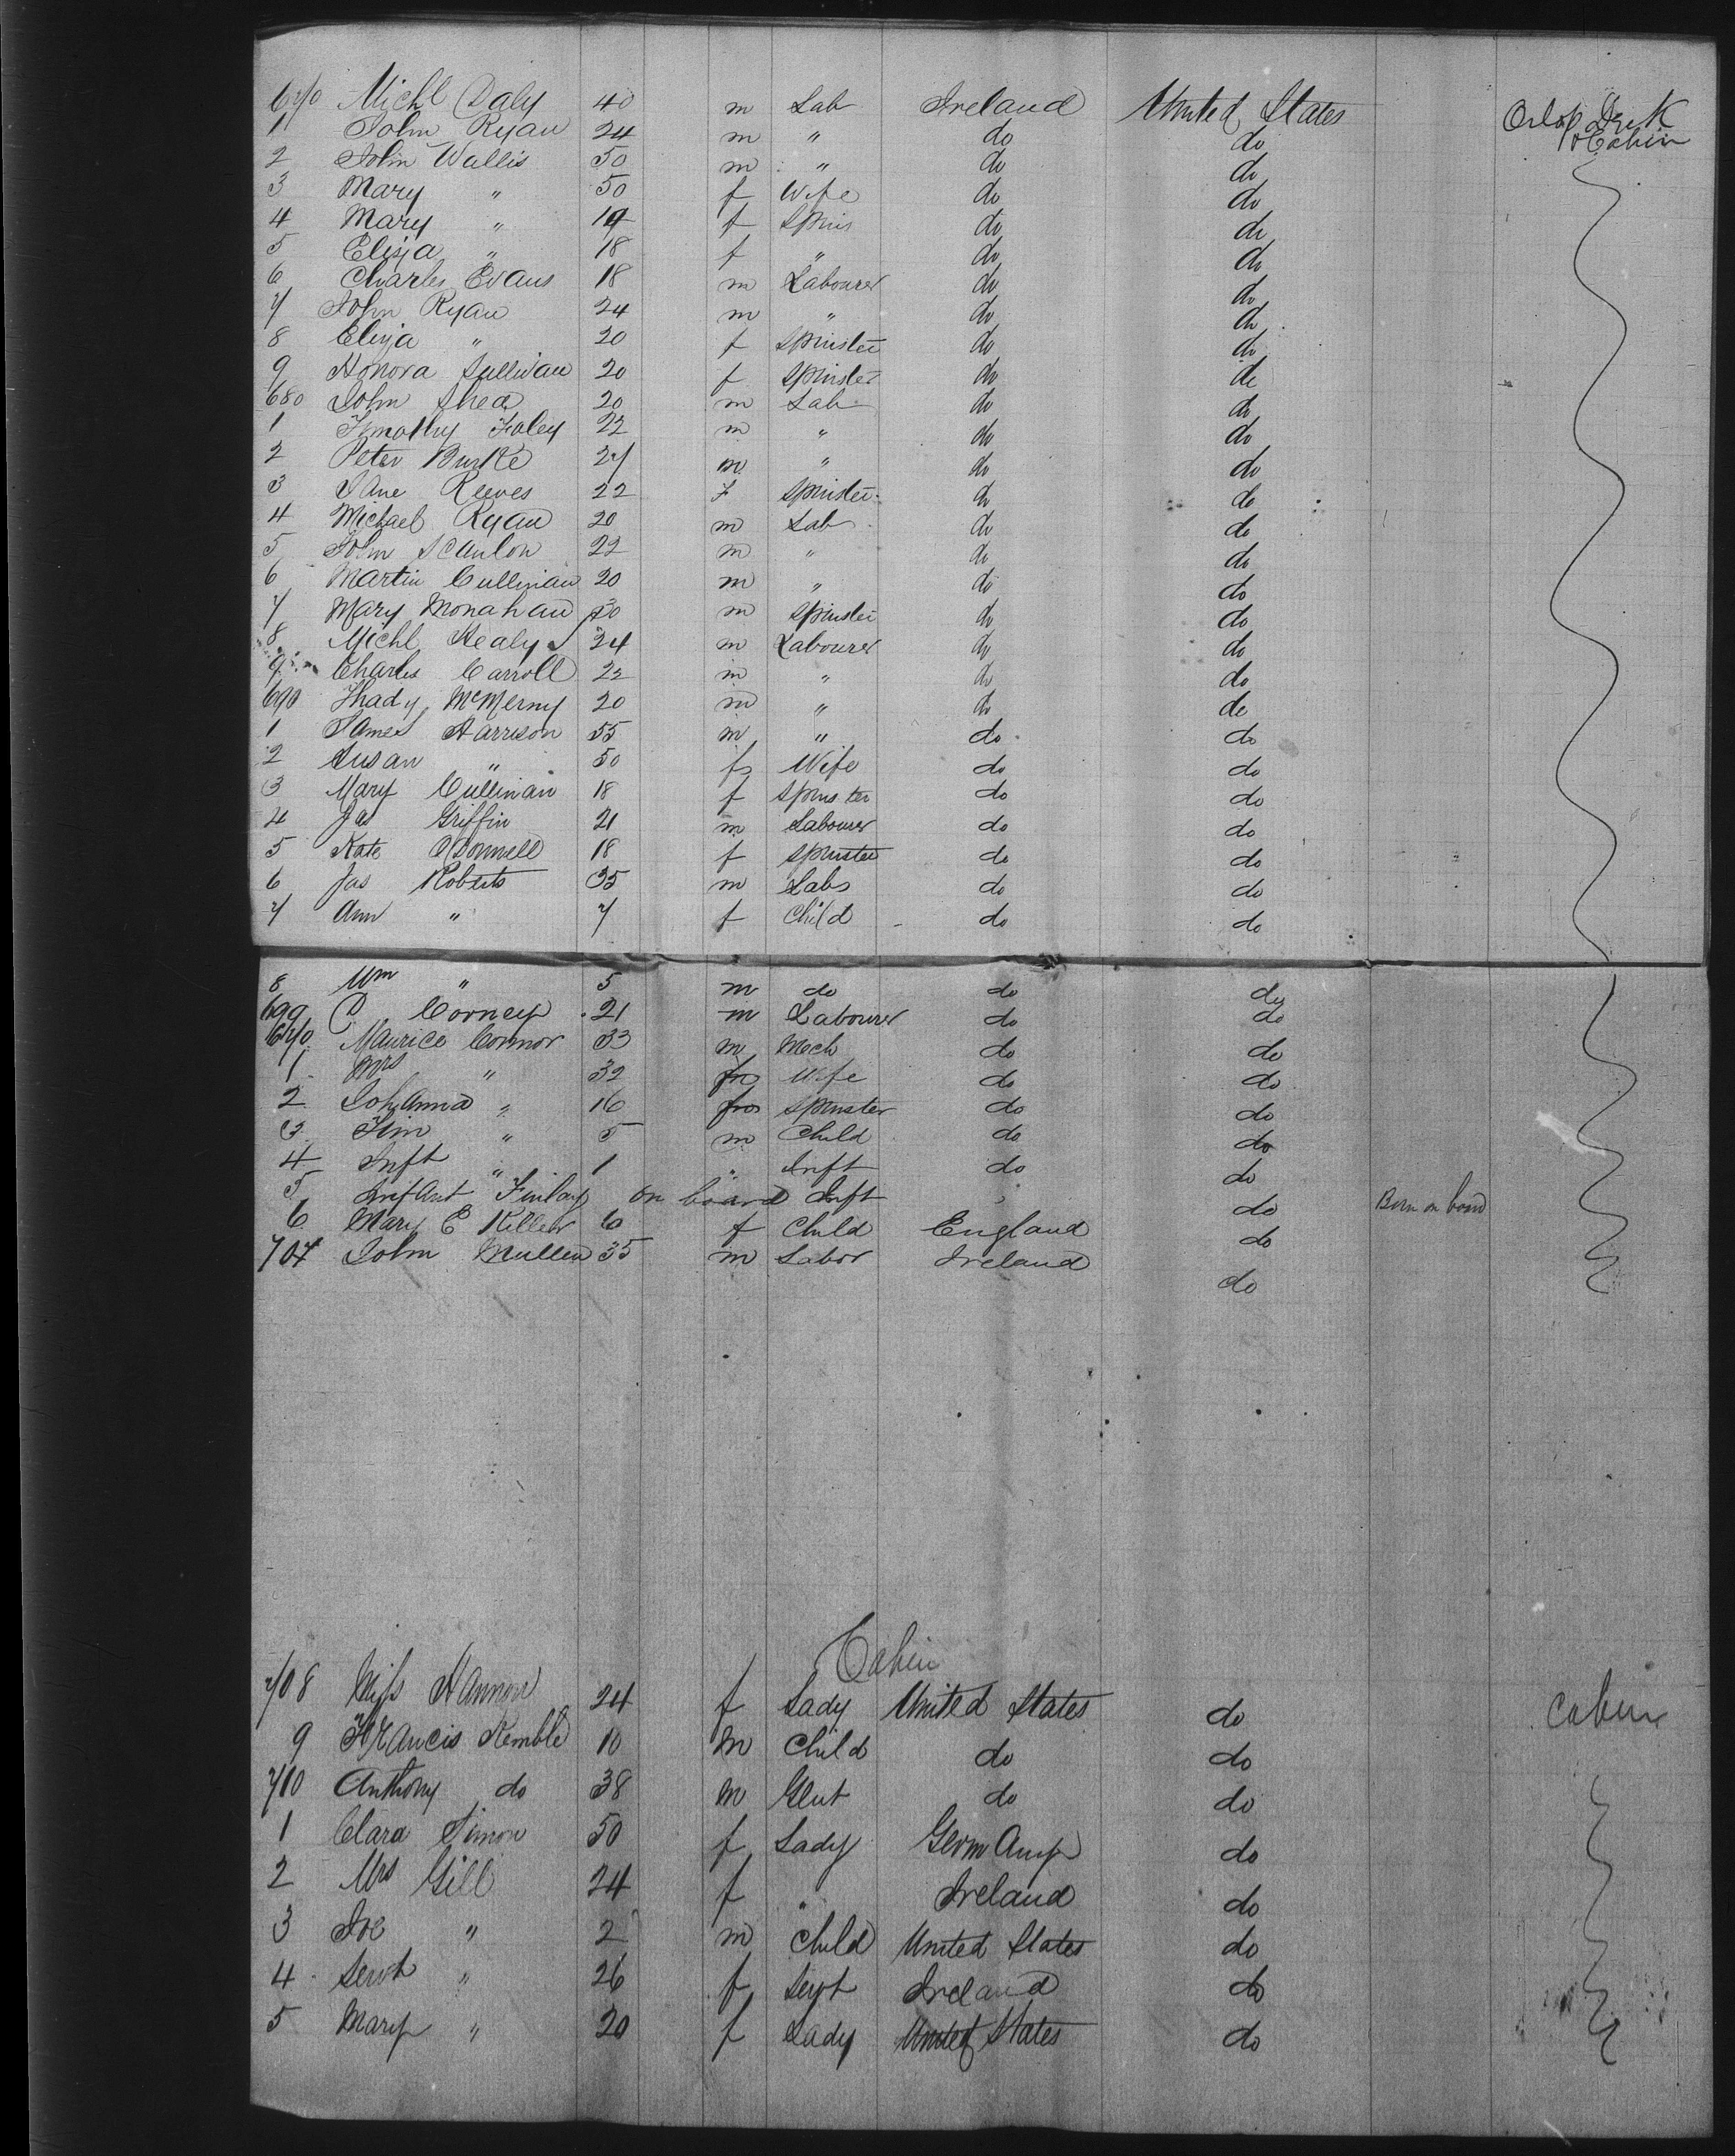 670 Michl Daly 40 m Lab Ireland United States Orlop Deck
1 John Ryan 24 m " do do Cabin
2 John Wallis 50 m " do do
3 Mary " 50 f Wife do do
4 Mary " 19 f Spins do do
5 Eliza " 18 f " do do
6 Charles Evans 18 m Labourer do do
7 John Ryan 24 m " do do
8 Eliza " 20 f Spinster do do
9 Honora Sullivan 20 f Spinster do do
680 John Shea 20 m Lab do do
1 Timothy Foley 22 m " do do
2 Peter Burke 27 m " do do
3 Jane Reeves 22 f Spinster do do
4 Michael Ryan 20 m Lab do do
5 John Scanlon 22 m " do do
6 Martin Cullinan 20 m " do do
7 Mary Monahan 20 m Spinster do do
8 Michl Healy 24 m Labourer do do
9 Charles Carroll 22 m " do do
690 Thady McMerny 20 m " do do
1 James Harrison 55 m " do do
2 Susan " 50 f Wife do do
3 Mary Cullinan 18 f Spinster do do
4 Jas Griffin 21 m Labourer do do
5 Kate O'Donnell 18 f Spinster do do
6 Jas Roberts 35 m Labr do do
7 Ann " 7 f Child do do
8 Wm " 5 m do do do
699 P Corney 21 m Labourer do do
Maurice Connor 33 m Mech do do
1 Mrs " 32 f Wife do do
2 Johanna " 16 f Spinster do do
3 Tim " 5 m Child do do
4 Inft " 1 " Inft do do
5 Infant Finlay on board Inft " do Born on board
6 Mary E Killer 6 f Child England do
707 John Mullen 35 m Labor Ireland do
Cabin
708 Miss Hannon 24 f Lady United States do Cabin
9 Francis Kemble 10 m Child do do
710 Anthony do 38 m Gent do do
1 Clara Simon 50 f Lady Germany do
2 Mrs Gill 24 f " Ireland do
3 Joe " 2 m Child United States do
4 Servt " 26 f Servt Ireland do
5 Mary " 20 f Lady United States do